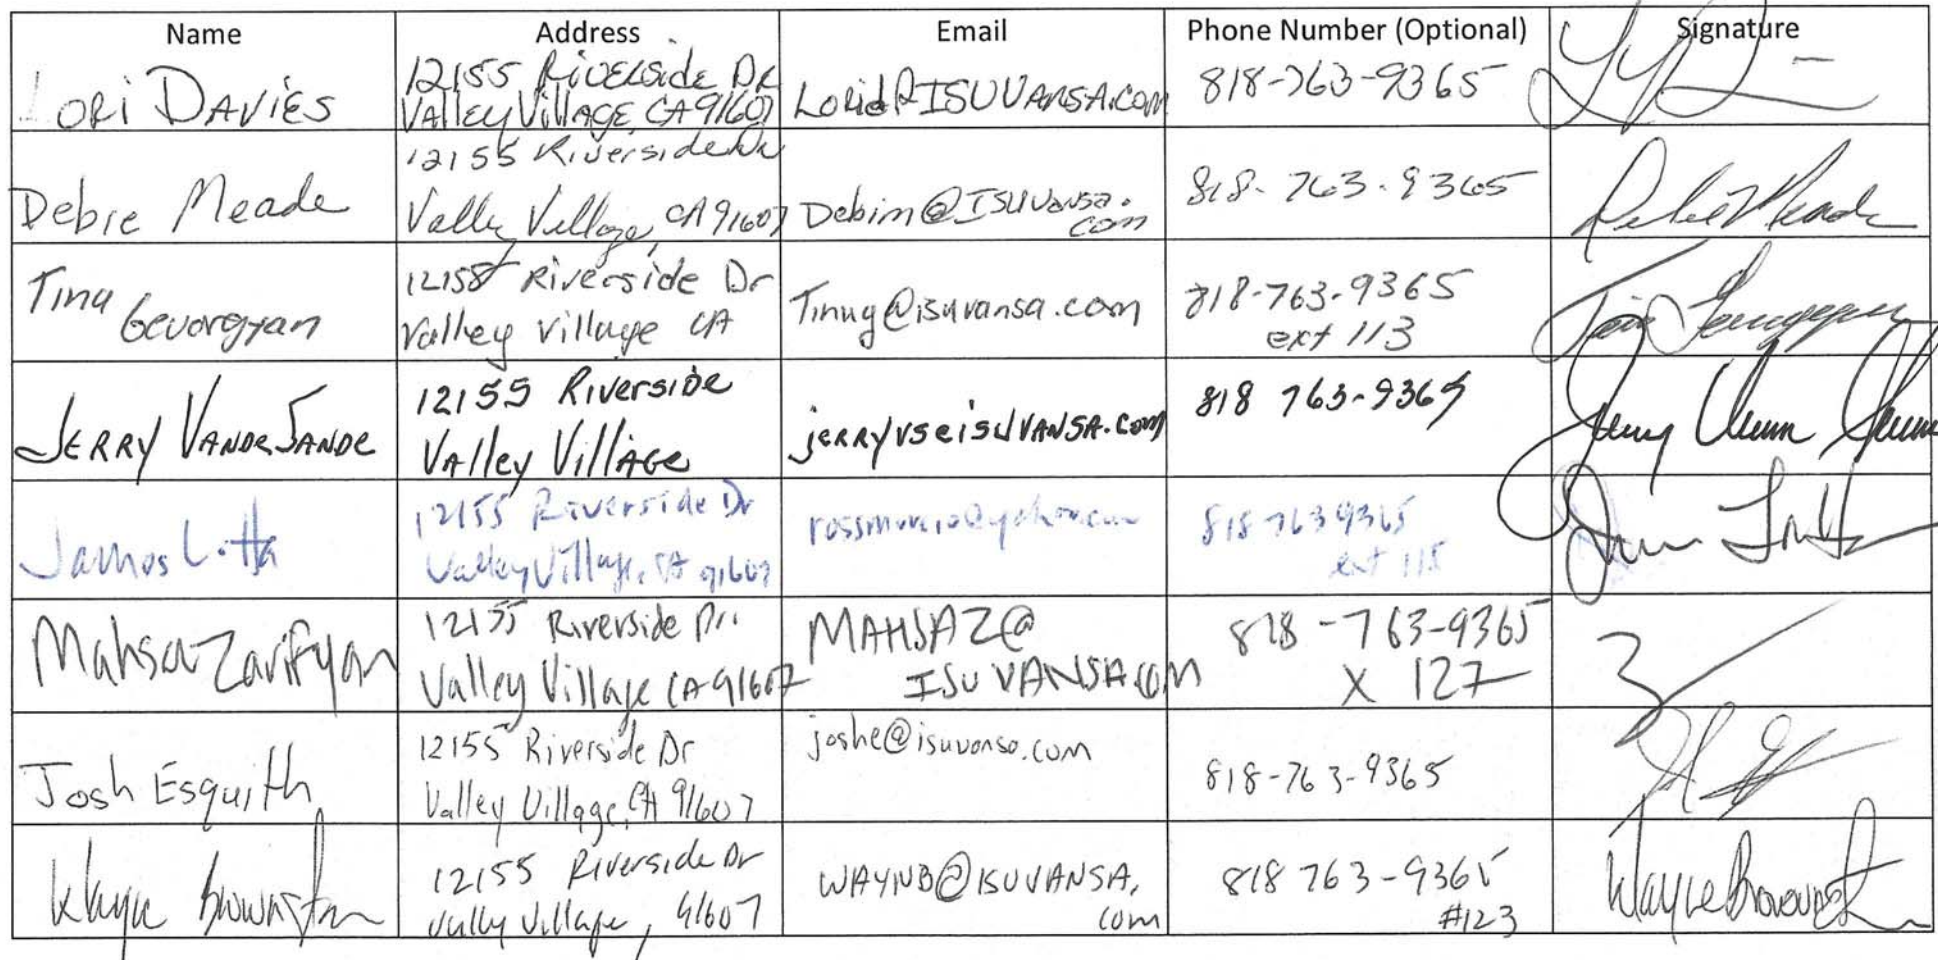 Name Address Email Phone Number (Optional) Signature
Lori Davies
12155 Riverside Dr
Valley Village, CA 91607
818-763-9365
Debie Meade
12155 Riverside Dr
Valley Village, CA 91607
Debim@ISUVansa.
com
818-763-9365
Debie Meade
Tina
Gevorgyan
12155 Riverside Dr
Valley Village CA
Tinag@isuvansa.com
818-763-9365
ext 113
Jerry VandeSande
12155 Riverside
Valley Village
jerryvs@isuvansa.com
818 763-9365
12155 Riverside Dr
Valley Village, CA 91607
818 763 9365
ext 115
Mahsa Zarifyan
12155 Riverside Dr.
Valley Village CA 91607
MAHSAZ@
ISUVANSA.COM
818-763-9365
X 127
Josh Esquith
12155 Riverside Dr
Valley Village, CA 91607
joshe@isuvansa.com
818-763-9365
12155 Riverside Dr
Vally Village, 91607
WAYNB@ISUVANSA,
com
818 763-9365
#123